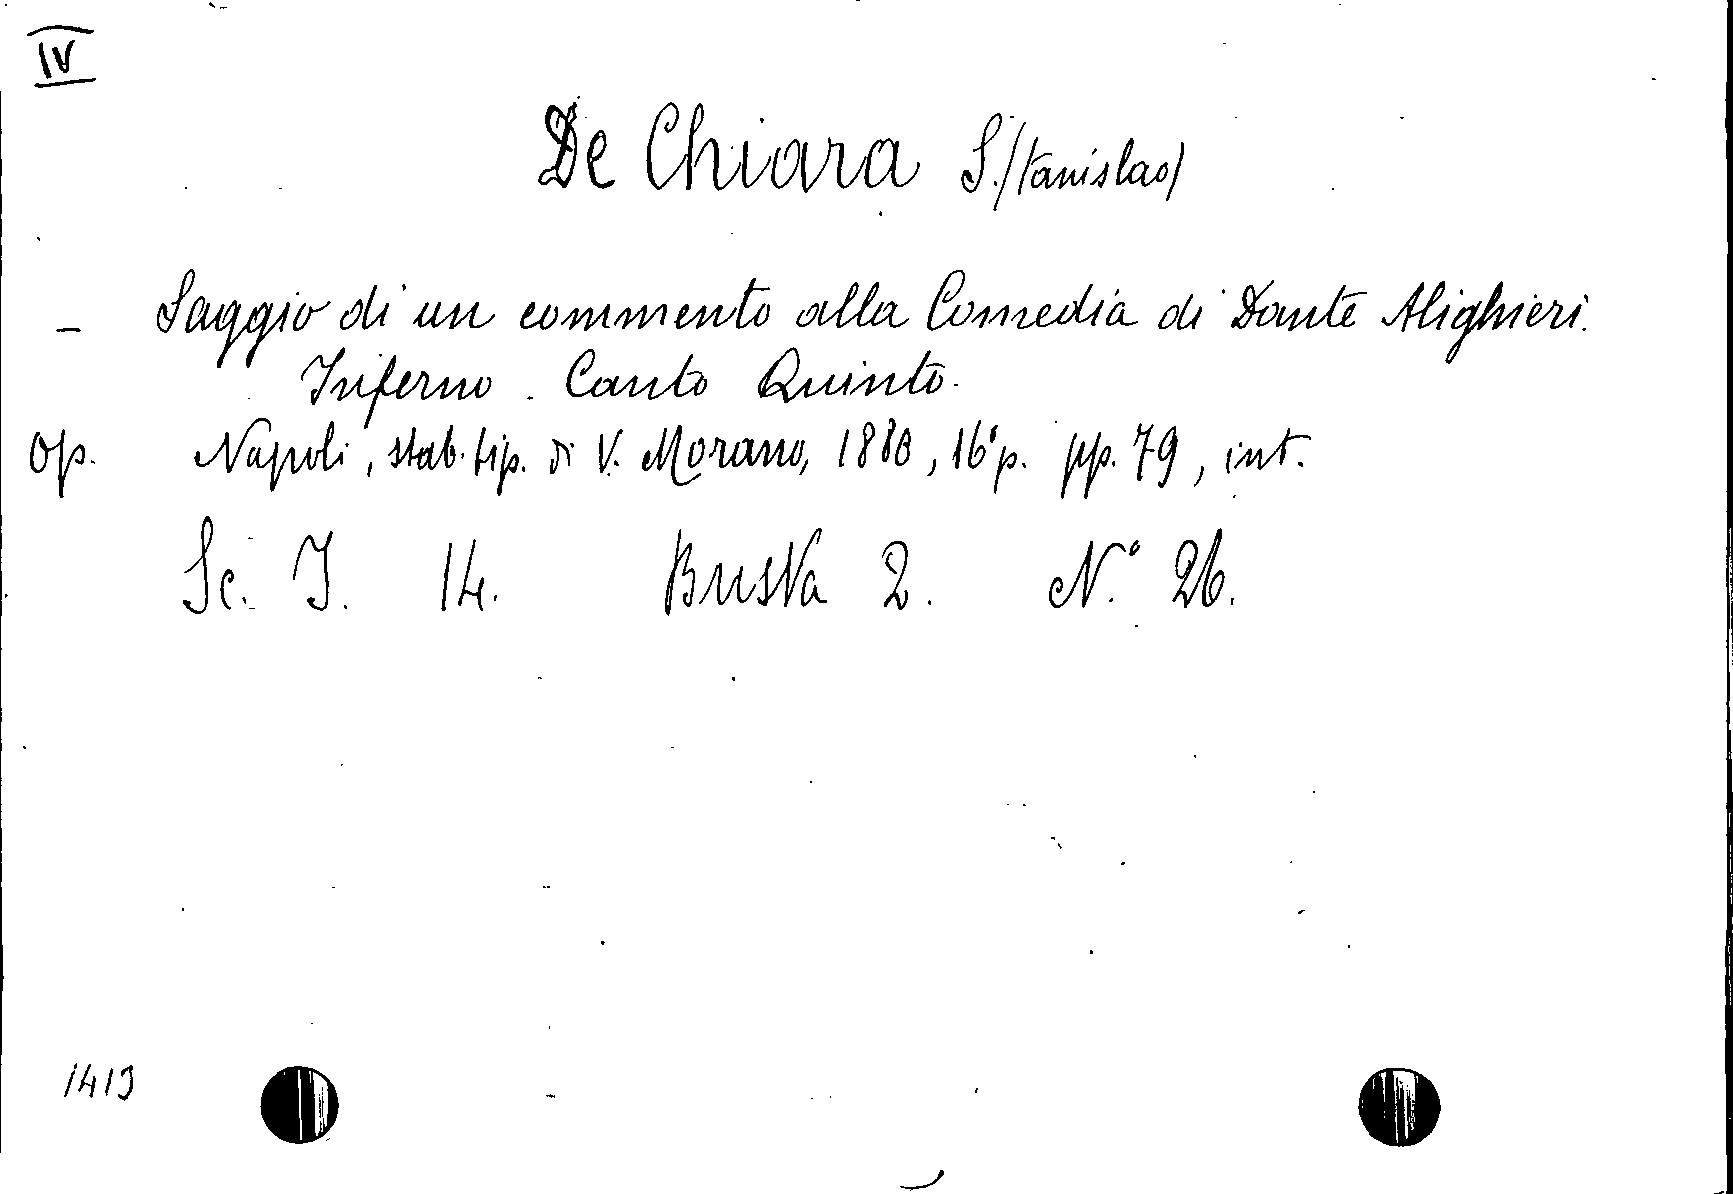 IV
De Chiara S./tanislao/
– Saggio di un commento alla Comedia di Dante Alighieri.
Inferno. Canto Quinto.
Op. Napoli, stab. tip. di V. Morano, 1880, 16° p. pp. 79, int.
Sc. I. 14. Busta 2. N.° 26.
1419